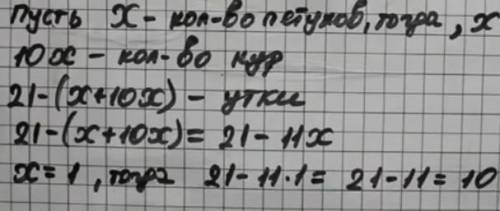 Пусть x - кол-во петухов, тогда, x
10x - кол-во кур
21-(x+10x) - утки
21-(x+10x) = 21-11x
x=1, тогда 21-11·1= 21-11=10